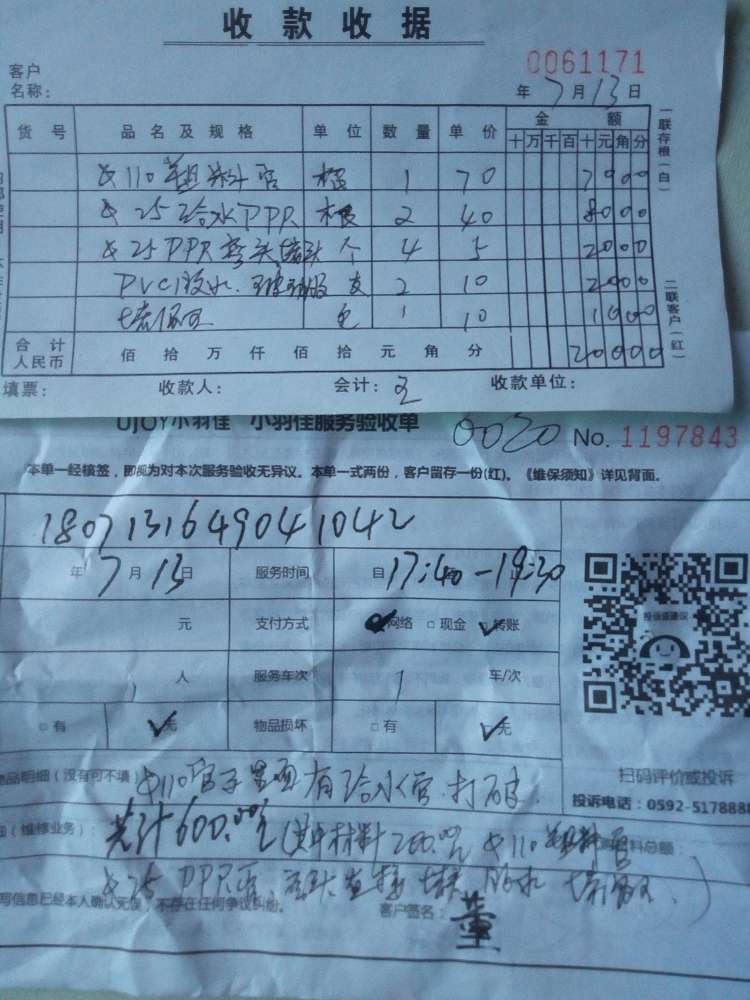 收款收据
0061171
客户
名称： 年 7 月 13 日
货号 品名及规格 单位 数量 单价 金额
十 万 千 百 十 元 角 分
一联存根（白）
φ110塑料管 根 1 70 7000
φ25给水PPR 根 2 40 8000
φ25PPR弯头堵头 个 4 5 2000
PVC胶水、玻璃胶 支 2 10 2000
包 1 10 1000
二联客户（红）
合计
人民币 佰 拾 万 仟 佰 拾 元 角 分 20000
填票： 收款人： 会计： 王 收款单位：
UJOY小羽佳 小羽佳服务验收单 0020 No. 1197843
本单一经核签，即视为对本次服务验收无异议。本单一式两份，客户留存一份(红)。《维保须知》详见背面。
1807131649041042
年 7 月 13 日 服务时间 自 17:40-19:30
元 支付方式 网络 □现金 转账
1 人 服务车次 1 车/次
□有 无 物品损坏 □有 无
品明细（没有可不填） φ110管子里面有给水管.打破.
扫码评价或投诉
投诉电话：0592-5178888
（维修业务）： 共计600.00元 (其中材料200.00元 φ110塑料管
料总额：
φ25 PPR管 弯头 直接 堵头 胶水
写信息已经本人确认无误，不存在任何争议纠纷。 客户签名： 董